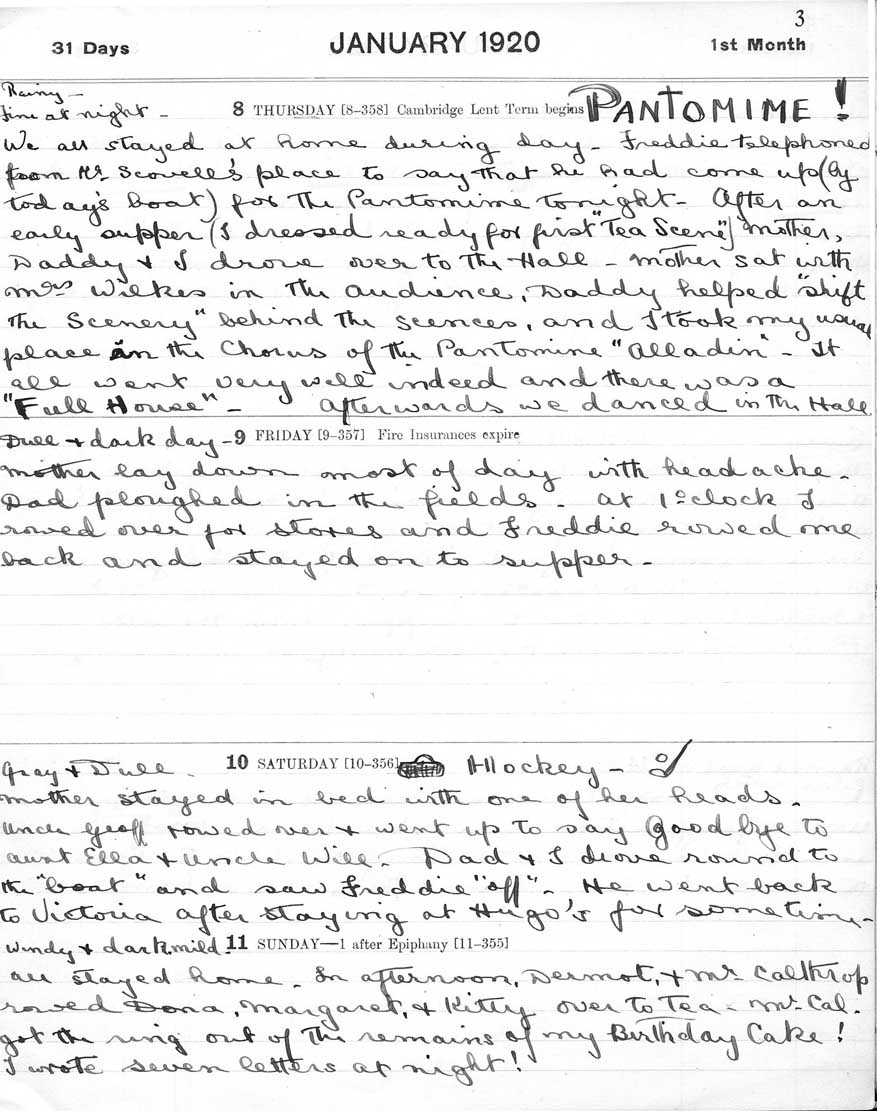 3
31 Days JANUARY 1920 1st Month
Rainy -
Fine at night - 8 THURSDAY [8-358] Cambridge Lent Term begins PANTOMIME !
We all stayed at home during day - Freddie telephoned
from Mr. Scovell's place to say that he had come up (by
today's boat) for the Pantomime tonight - After an
early supper (I dressed ready for first "Tea Scene") Mother,
Daddy & I drove over to the Hall - Mother sat with
Mrs Wilkes in the audience, Daddy helped "shift
the Scenery" behind the scences, and I took my usual
place in the Chorus of the Pantomine "Alladin" - It
all went very well indeed and there was a
"Full House" - Afterwards we danced in the Hall
Dull & dark day - 9 FRIDAY [9-357] Fire Insurances expire
Mother lay down most of day with headache.
Dad ploughed in the fields. At 1 oclock I
rowed over for stores and Freddie rowed me
back and stayed on to supper -
Gray & Dull. 10 SATURDAY [10-356] Hockey -
Mother stayed in bed with one of her heads.
Uncle Geoff rowed over & went up to say Good bye to
Aunt Ella & Uncle Will. Dad & I drove round to
the "boat" and saw Freddie "off". He went back
to Victoria after staying at Hugo's for sometime -
Windy & dark. mild. 11 SUNDAY—1 after Epiphany [11-355]
All stayed home. In afternoon, Dermot, & Mr. Calthrop
rowed Dora, Margaret, & Kitty over to Tea - Mr. Cal.
got the ring out of the remains of my Birthday Cake !
I wrote seven letters at night !